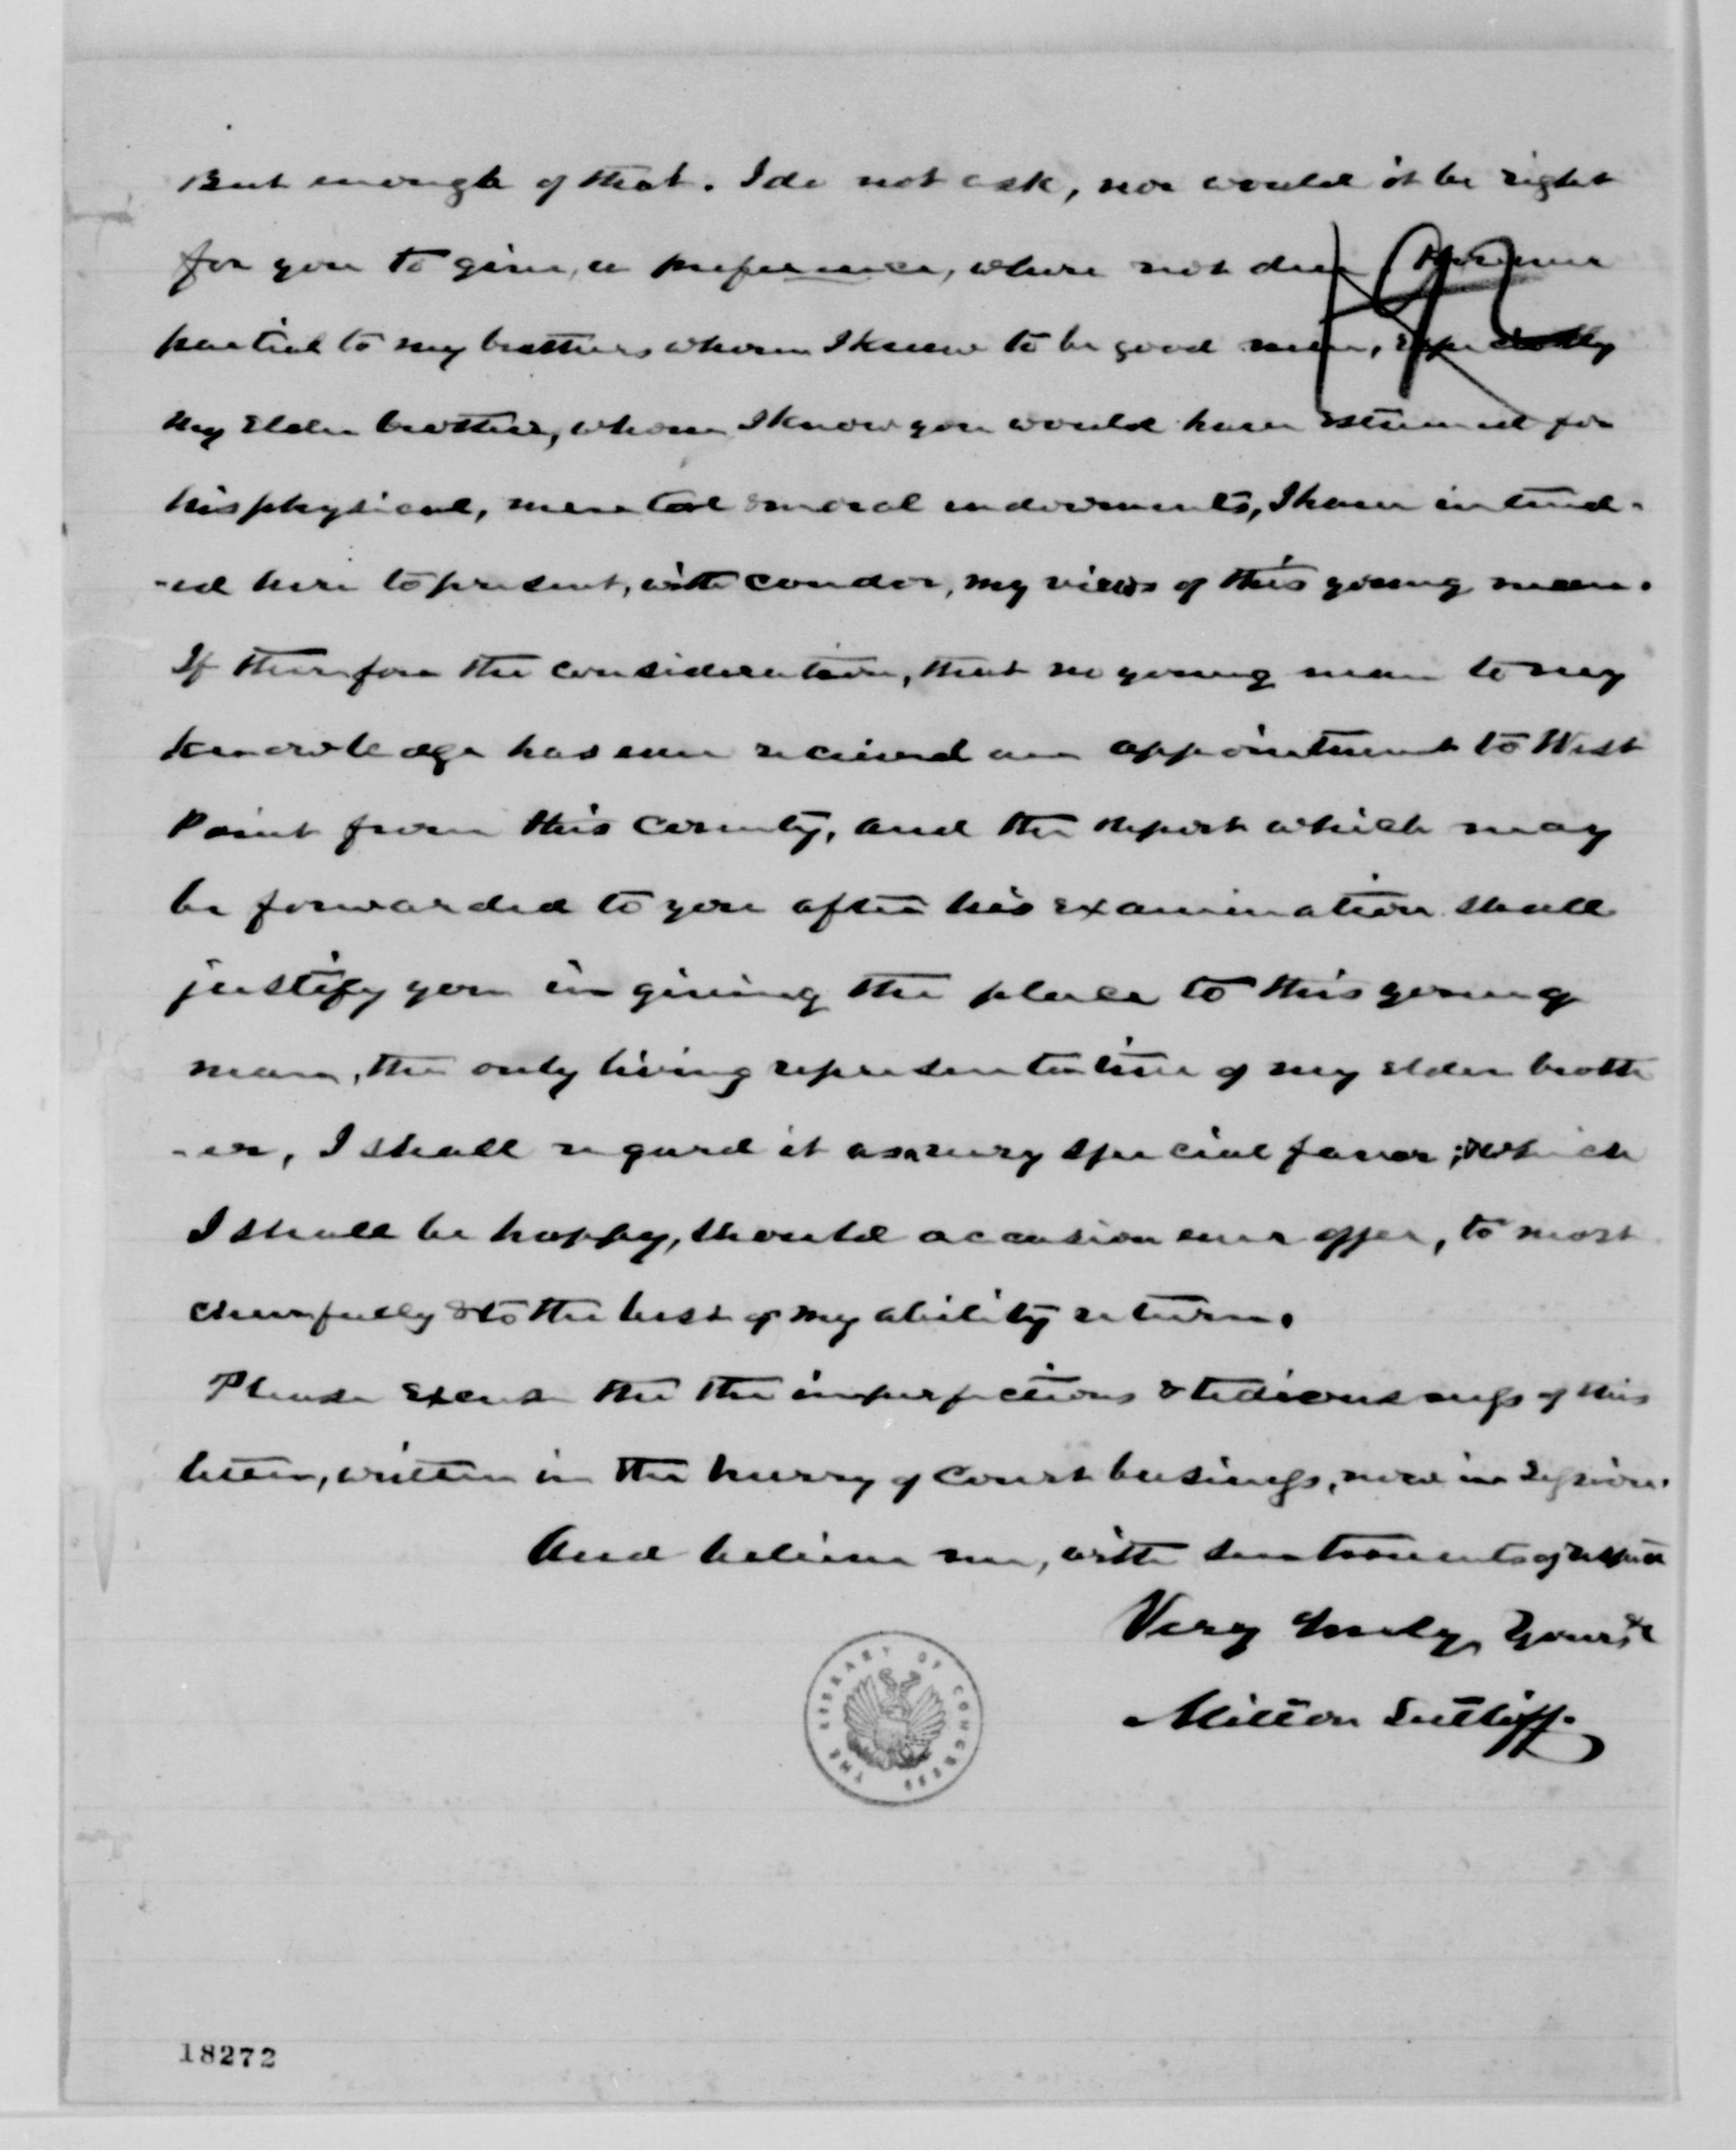 But enough of that. I do not ask, nor would it be right
for you to give, a preference, where not due. However
partial to my brothers whom I knew to be good men, especially
my elder brother, whom I know you would have esteemed for
his physical, mental & moral endowments, I have intend-
-ed here to present, with candor, my views of this young man.
If therefore the consideration, that no young man to my
knowledge has ever received an appointment to West
Point from this County, and the report which may
be forwarded to you after his examination shall
justify you in giving the place to this young
man, the only living representative of my elder broth
-er, I shall regard it as a very special favor; which
I shall be happy, should occasion ever offer, to most
cheerfully & to the best of my ability return.
Please excuse the the imperfections & tediousness of this
letter, written in the hurry of Court business, now in session.
And believe me, with sentiments of respect
Very truly, Yours &c
Milton Sutliff.
THE LIBRARY OF CONGRESS
18272